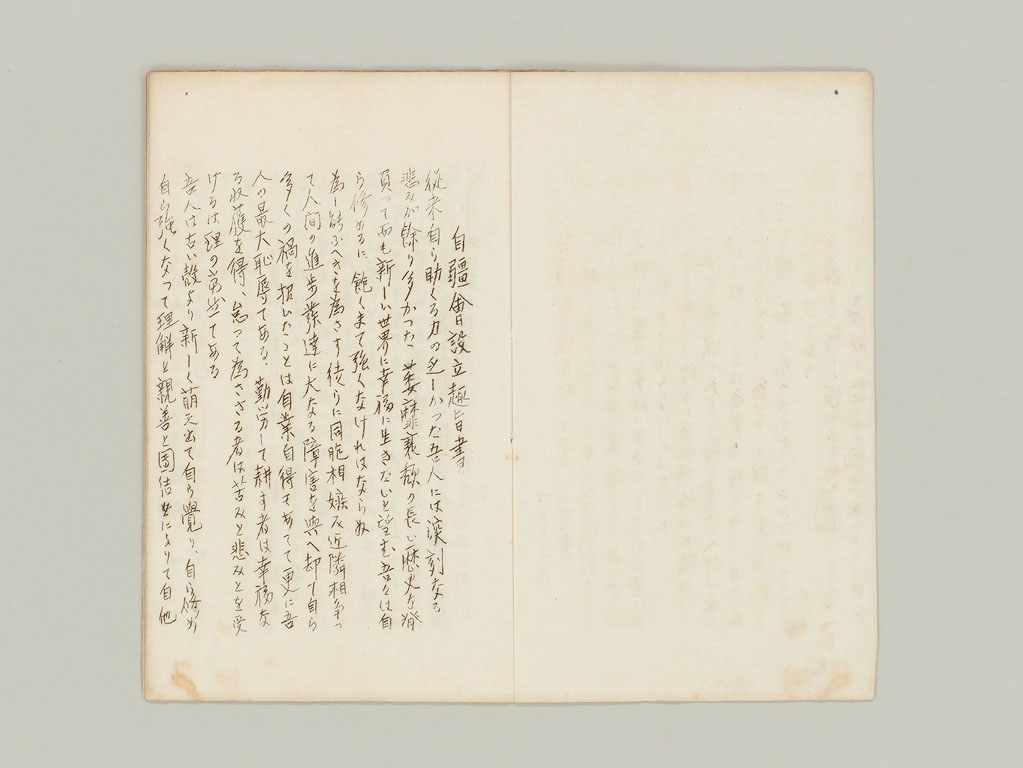 自疆會設立趣旨書
従来自ら助くる力の乏しかつた吾人には深刻なる
悲みが餘り多かつた、萎靡衰頽の長い歴史を脊
負って而も新しい世界に幸福に生きたいと望む吾々は自
ら修めるに、飽くまて強くなけれはならぬ
為し能ふへきを為さす徒らに同胞相嫉み近隣相争っ
て人間の進歩発達に大なる障害を與へ却て自ら
多くの禍を招いたことは自業自得てあつて更に吾
人の最大恥辱てある、勤労して耕す者は幸福な
る収獲を得、怠って為ささる者は苦みと悲みとを受
けるは理の当然てある
吾人は古い殻より新しく萌え出て自ら覺り、自ら修め
自ら強くなって理解と親善と團結とによりて自他